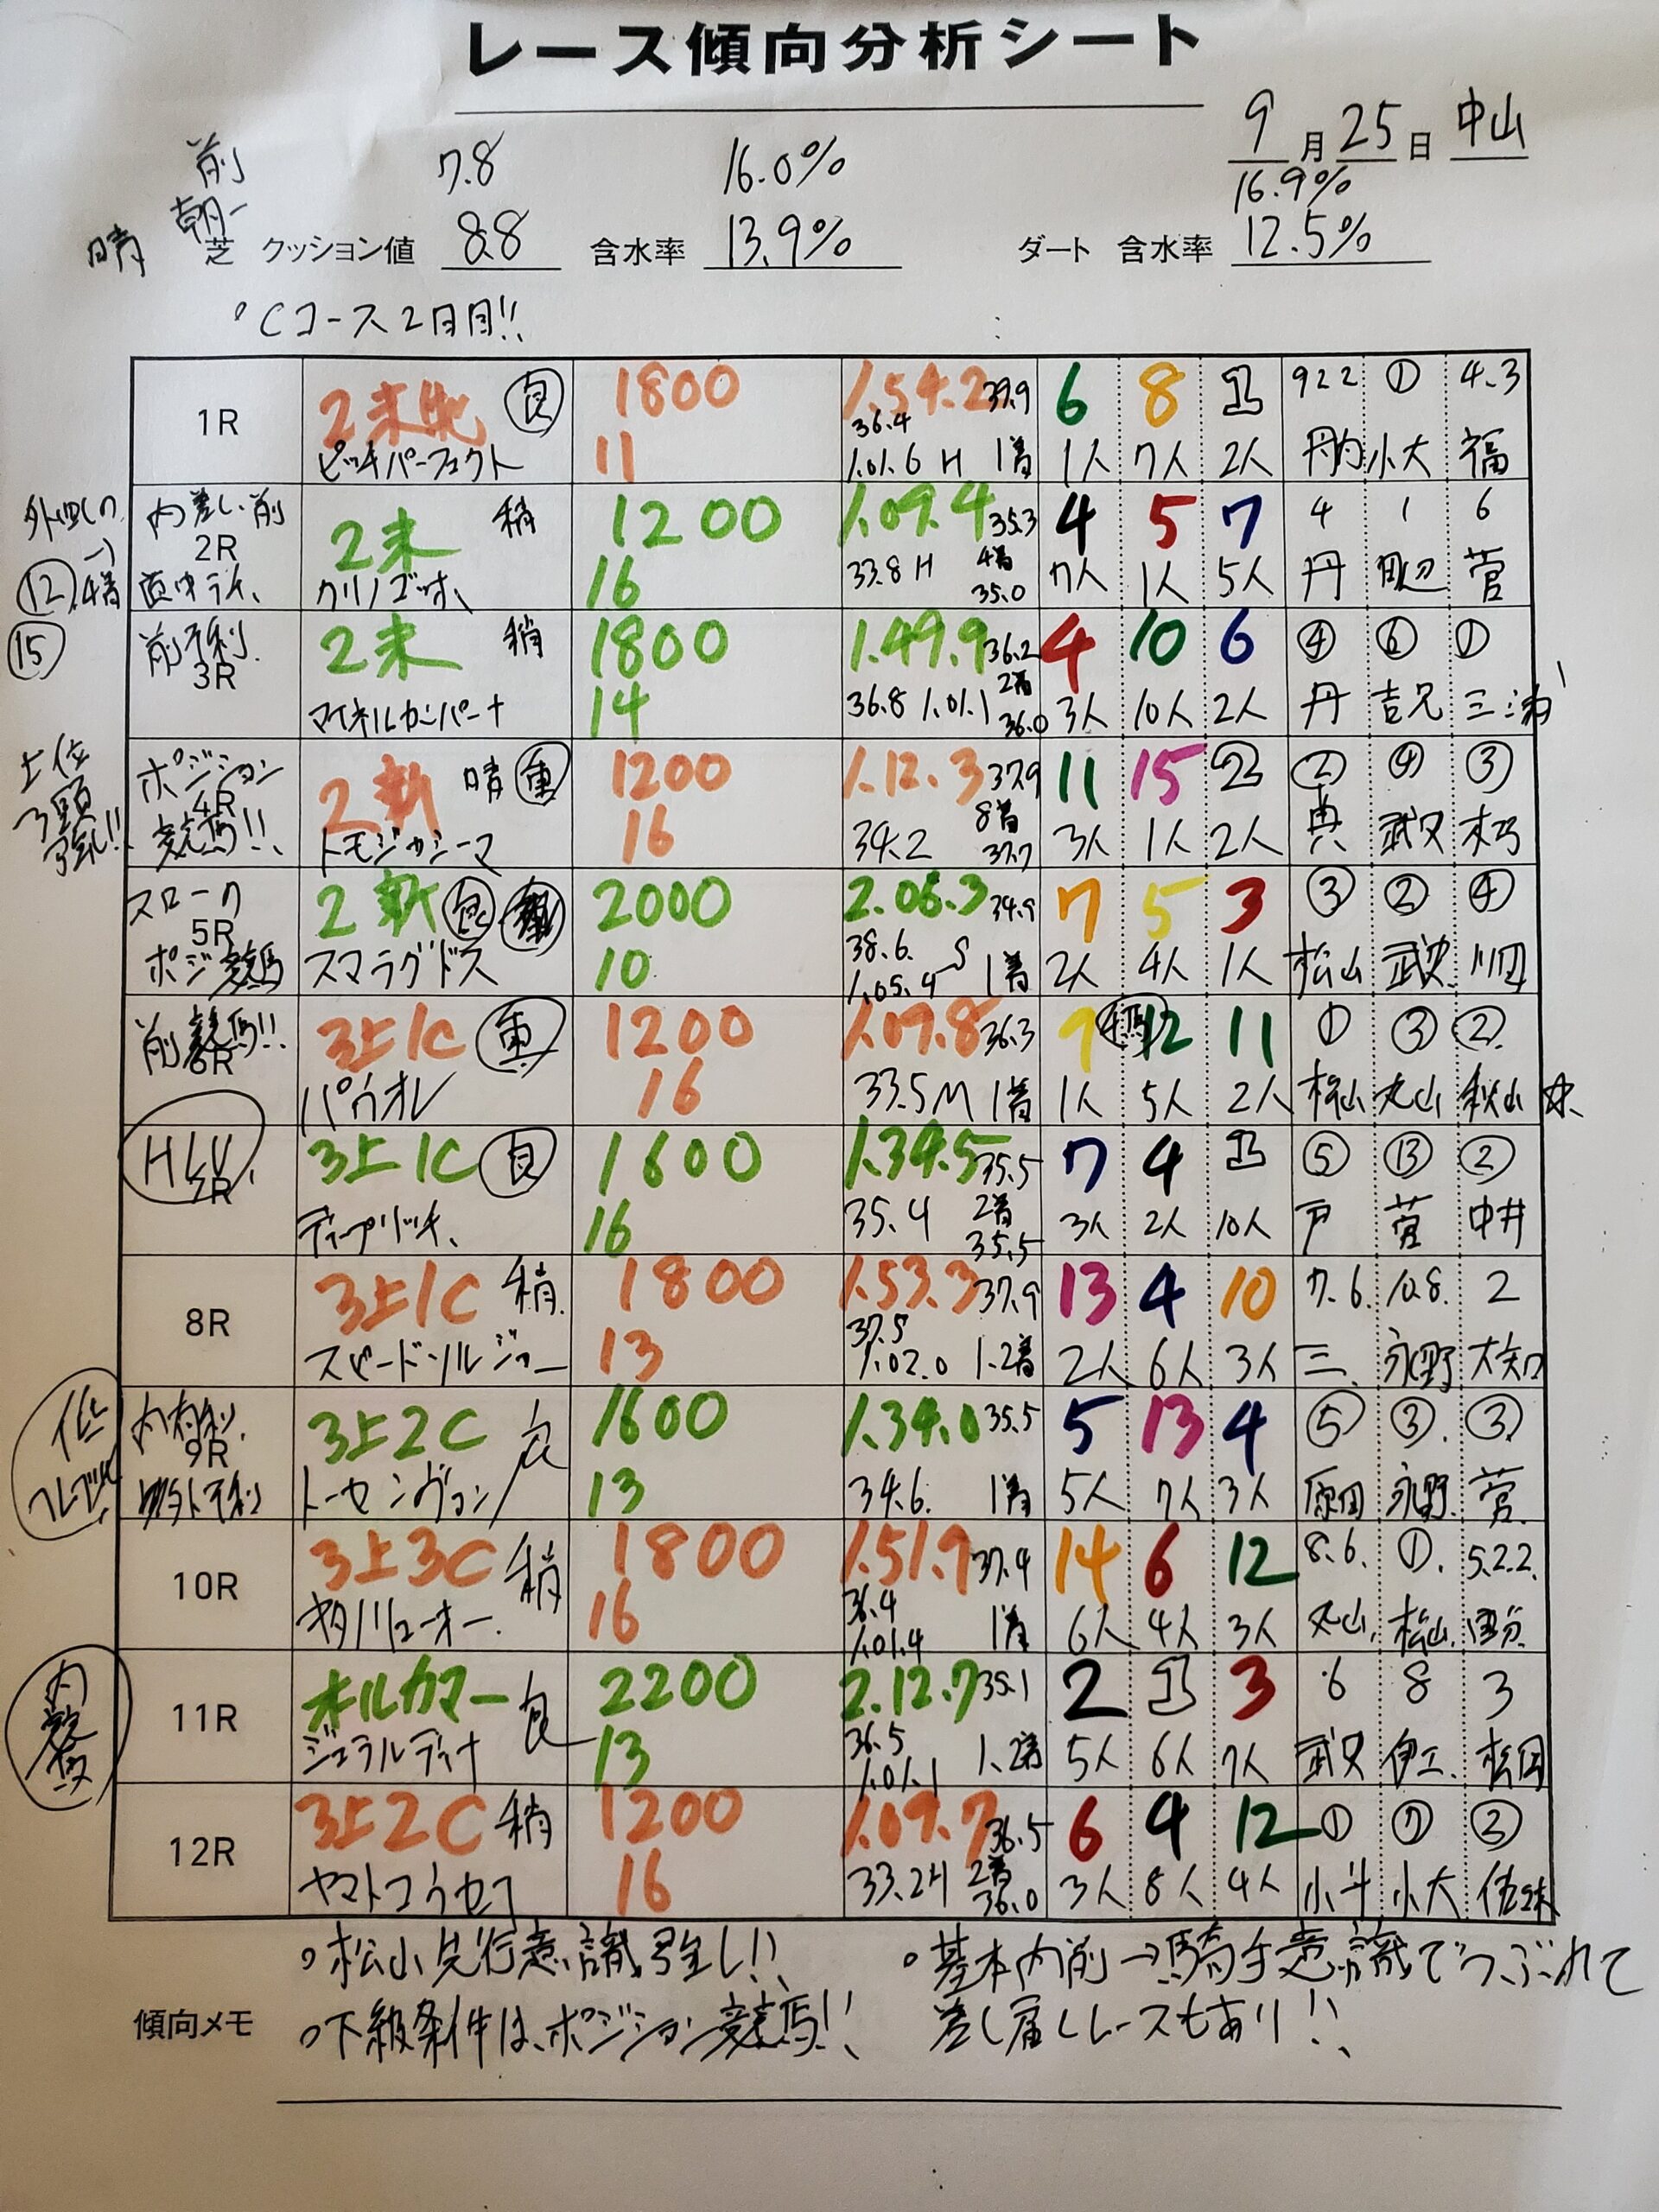 レース傾向分析シート
9月25日 中山
前 7.8 16.0% 16.9%
晴 朝一
芝 クッション値 8.8 含水率 13.9% ダート 含水率 12.5%
Cコース2日目!!
1R 2未牝 良 1800 1.54.2 39.9 6 8 1 922 ① 4.3
ピッチパーフェクト 11 36.4 1.01.6 H 1着 1人 7人 2人 丹内 小大 福
内差し、前 2R 2未 稍 1200 1.09.4 35.3 4 5 7 4 1 6
⑫ 4着 クリノゴッホ 16 33.8 H 4着 35.0 7人 1人 5人 丹 田辺 菅
⑮ 前不利 3R 2未 稍 1800 1.49.9 36.2 4 10 6 ④ ⑥ ①
マイネルカンパーナ 14 36.8 1.01.1 2着 36.0 3人 10人 2人 丹 吉兄 三浦
上位3頭強!! ポジション競馬!! 4R 2新 晴 重 1200 1.12.3 37.9 11 15 2 ② ④ ③
トモジャシーマ 16 34.2 8着 37.7 3人 1人 2人 典 武史
スローク 5R 2新 良 2000 2.06.3 34.9 7 5 3 ③ ② ④
ポジ競馬 スマラグドス 10 38.6 1.05.4 S 1着 2人 4人 1人 松山 武史 川田
前競馬!! 6R 3上1C 重 1200 1.09.8 36.3 7 12 11 ① ③ ②
パウオレ 16 33.5 M 1着 1人 5人 2人 松山 丸山 秋山
HLV 7R 3上1C 良 1600 1.34.5 35.5 7 4 1 ⑤ ⑬ ②
ディープリッチ 16 35.4 2着 35.5 3人 2人 10人 戸 菅 中井
8R 3上1C 稍 1800 1.53.3 37.9 13 4 10 7.6. 10.8. 2
スピードソルジャー 13 37.5 1.02.0 1.2着 2人 6人 3人 三 永野 大知
内有利 9R 3上2C 良 1600 1.34.0 35.5 5 13 4 ⑤ ③ ③
トーセンヴァン 13 34.6 1着 5人 7人 3人 原田 永野 菅
10R 3上3C 稍 1800 1.51.9 37.4 14 6 12 8.6. ① 5.2.2.
16 36.4 1.01.4 1着 6人 4人 3人 丸山 松山 国分
内競馬 11R オールカマー 良 2200 2.12.7 35.1 2 1 3 6 8 3
ジェラルディーナ 13 36.5 1.01.1 1.2着 5人 6人 7人 武史 伊工 松田
12R 3上2C 稍 1200 1.09.7 36.5 6 4 12 ① ⑦ ②
ヤマトコウセイ 16 33.2 H 2着 36.0 3人 8人 4人 小大
傾向メモ
。松山先行意識強し!!
。下級条件は、ポジション競馬!!
。基本内前→騎手意識でつぶれて
差し届くレースもあり!!